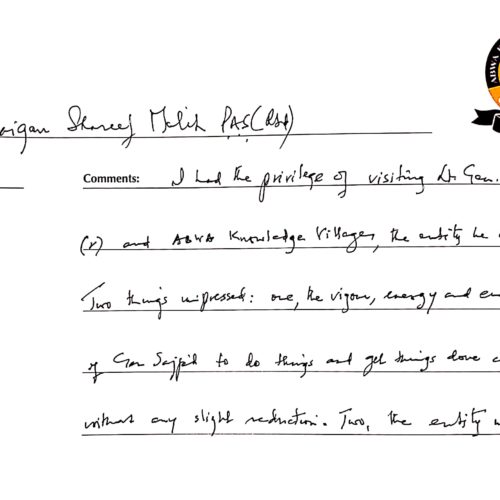 Shareef Malik PAS(Rtd)
Comments: I had the privilege of visiting Lt Gen.
(r) and ABWA Knowledge Villages, the entity he
Two things impressed: one, the vigour, energy and en
of Gen Sajjad to do things and get things done
without any slight reduction. Two, the entity
ABWA